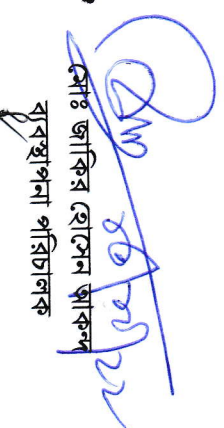 মোঃ জাকির হোসেন আকন্দ
ব্যবস্থাপনা পরিচালক